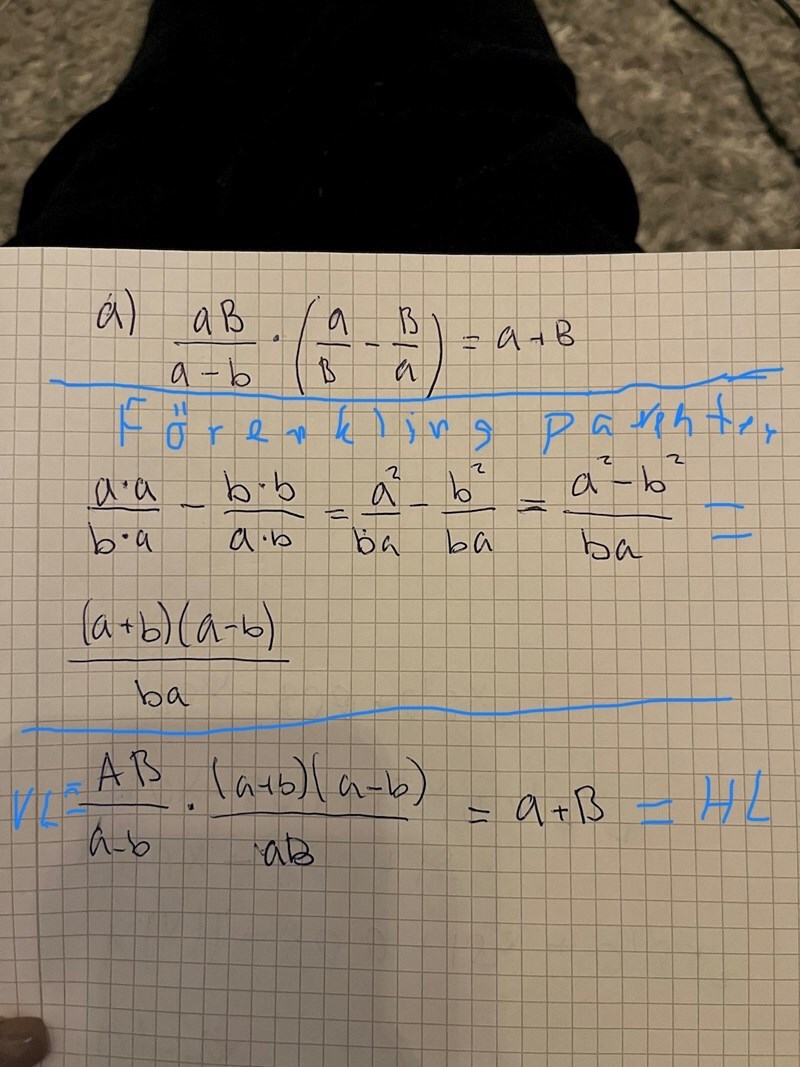 a) aB/(a-b) · (a/B - B/a) = a+B
Förenkling parente,
a·a/b·a - b·b/a·b = a²/ba - b²/ba = (a²-b²)/ba =
(a+b)(a-b)/ba
VL = AB/(a-b) · (a+b)(a-b)/aB = a+B = HL